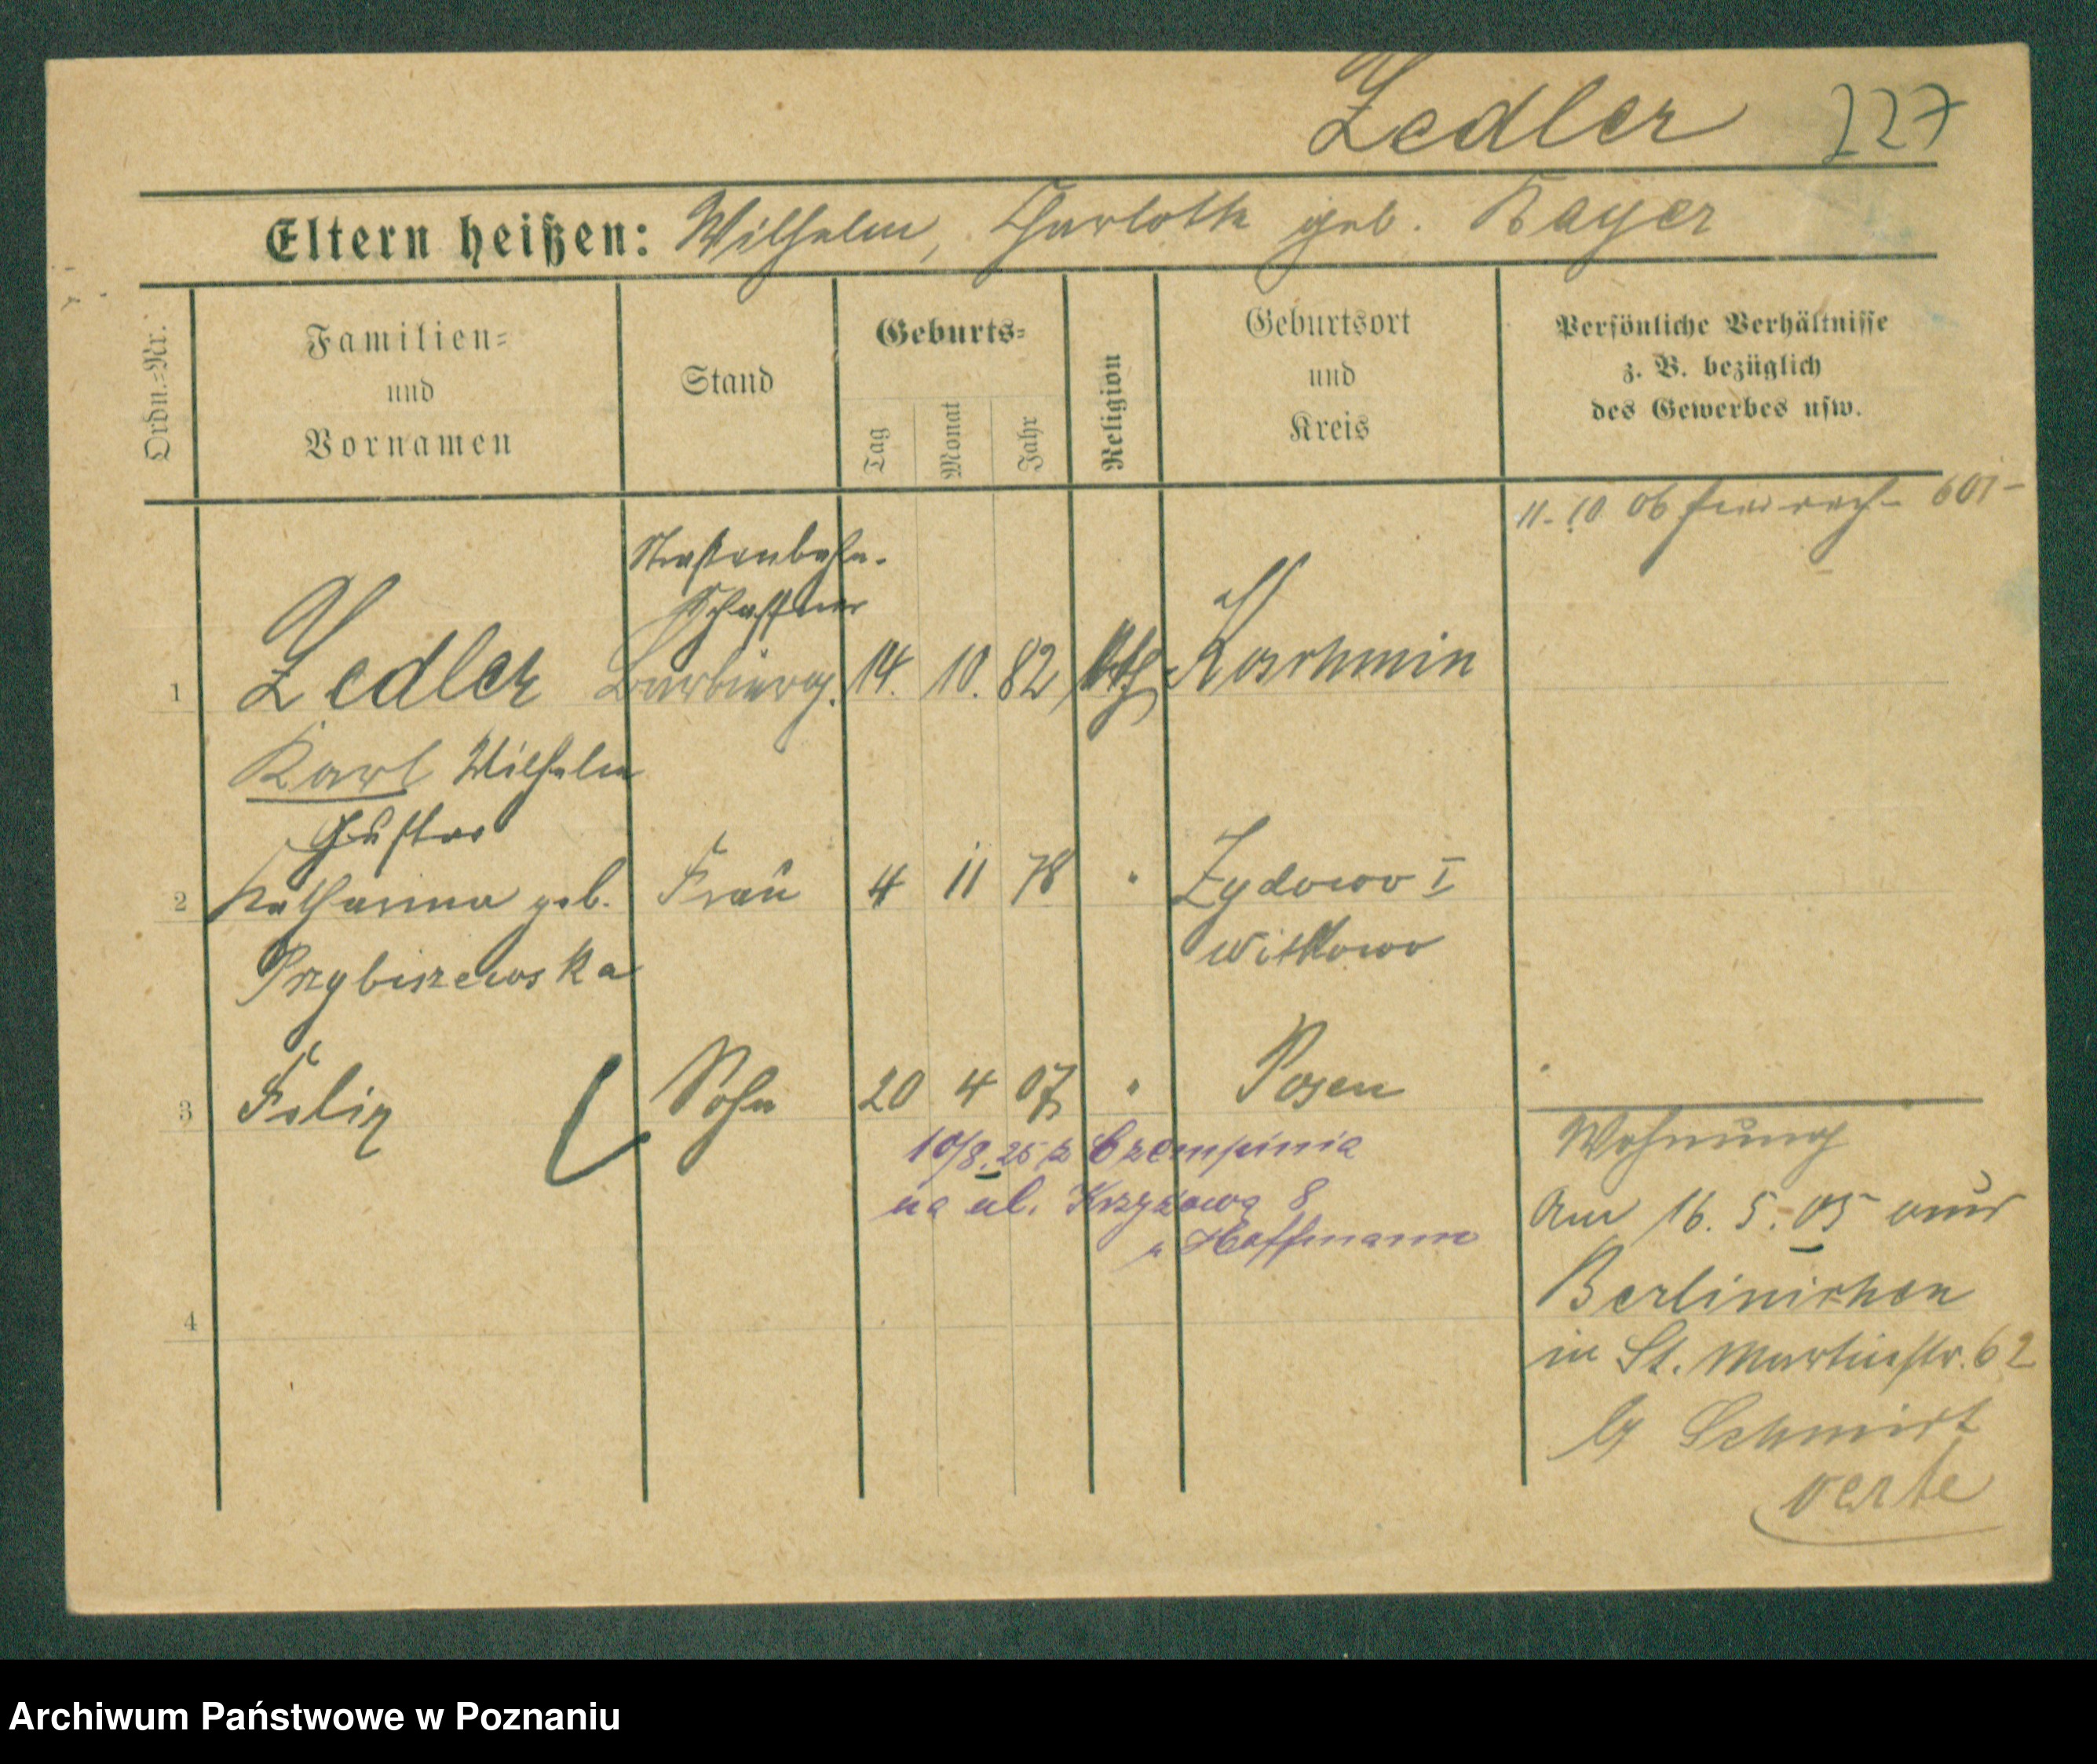 Zedler 227
Eltern heißen: Wilhelm, Charlotte geb. Bayer
Ordn.=Nr.
Familien=
und
Vornamen
Stand
Geburts=
Tag
Monat
Jahr
Religion
Geburtsort
und
Kreis
Persönliche Verhältnisse
z. B. bezüglich
des Gewerbes usw.
11-10 06 601-
Straßenbahn-
Schaffner
1 Zedler 14. 10. 82 kath Koschmin
Karl Wilhelm
Gustav
2 Katharina geb. Frau 4 11 78 " Zydowo I
Przybiszewska Witkowo
3 Felix Sohn 20 4 07 " Posen
10/8.25 z Czempinia
na ul. Krzyżową 8
u Hoffmann
4
Wohnung
Am 16. 5. 05 aus
Berlinichen
in St. Martinstr. 62
b/ Schmidt
verte
Archiwum Państwowe w Poznaniu